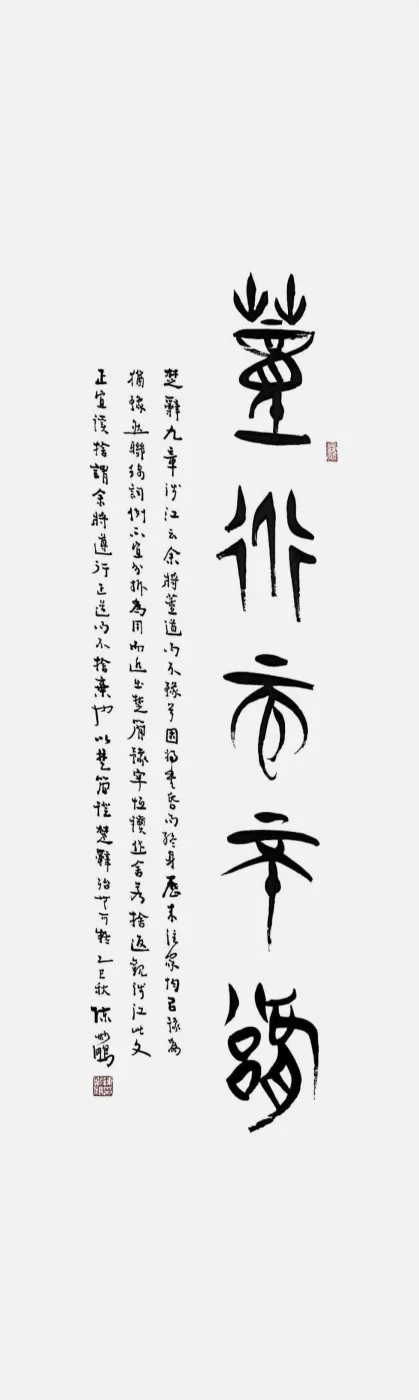 董道而不豫
楚辭九章涉江云余將董道而不豫兮固將重昏而終身歷來注家均以豫為
猶豫然聯綿詞例不宜分拆為用而近出楚簡豫字恆讀作舍若捨返觀涉江此文
正宜讀捨謂余將遵行正道而不捨棄也以楚簡證楚辭殆無可疑乙巳秋陳斯鵬